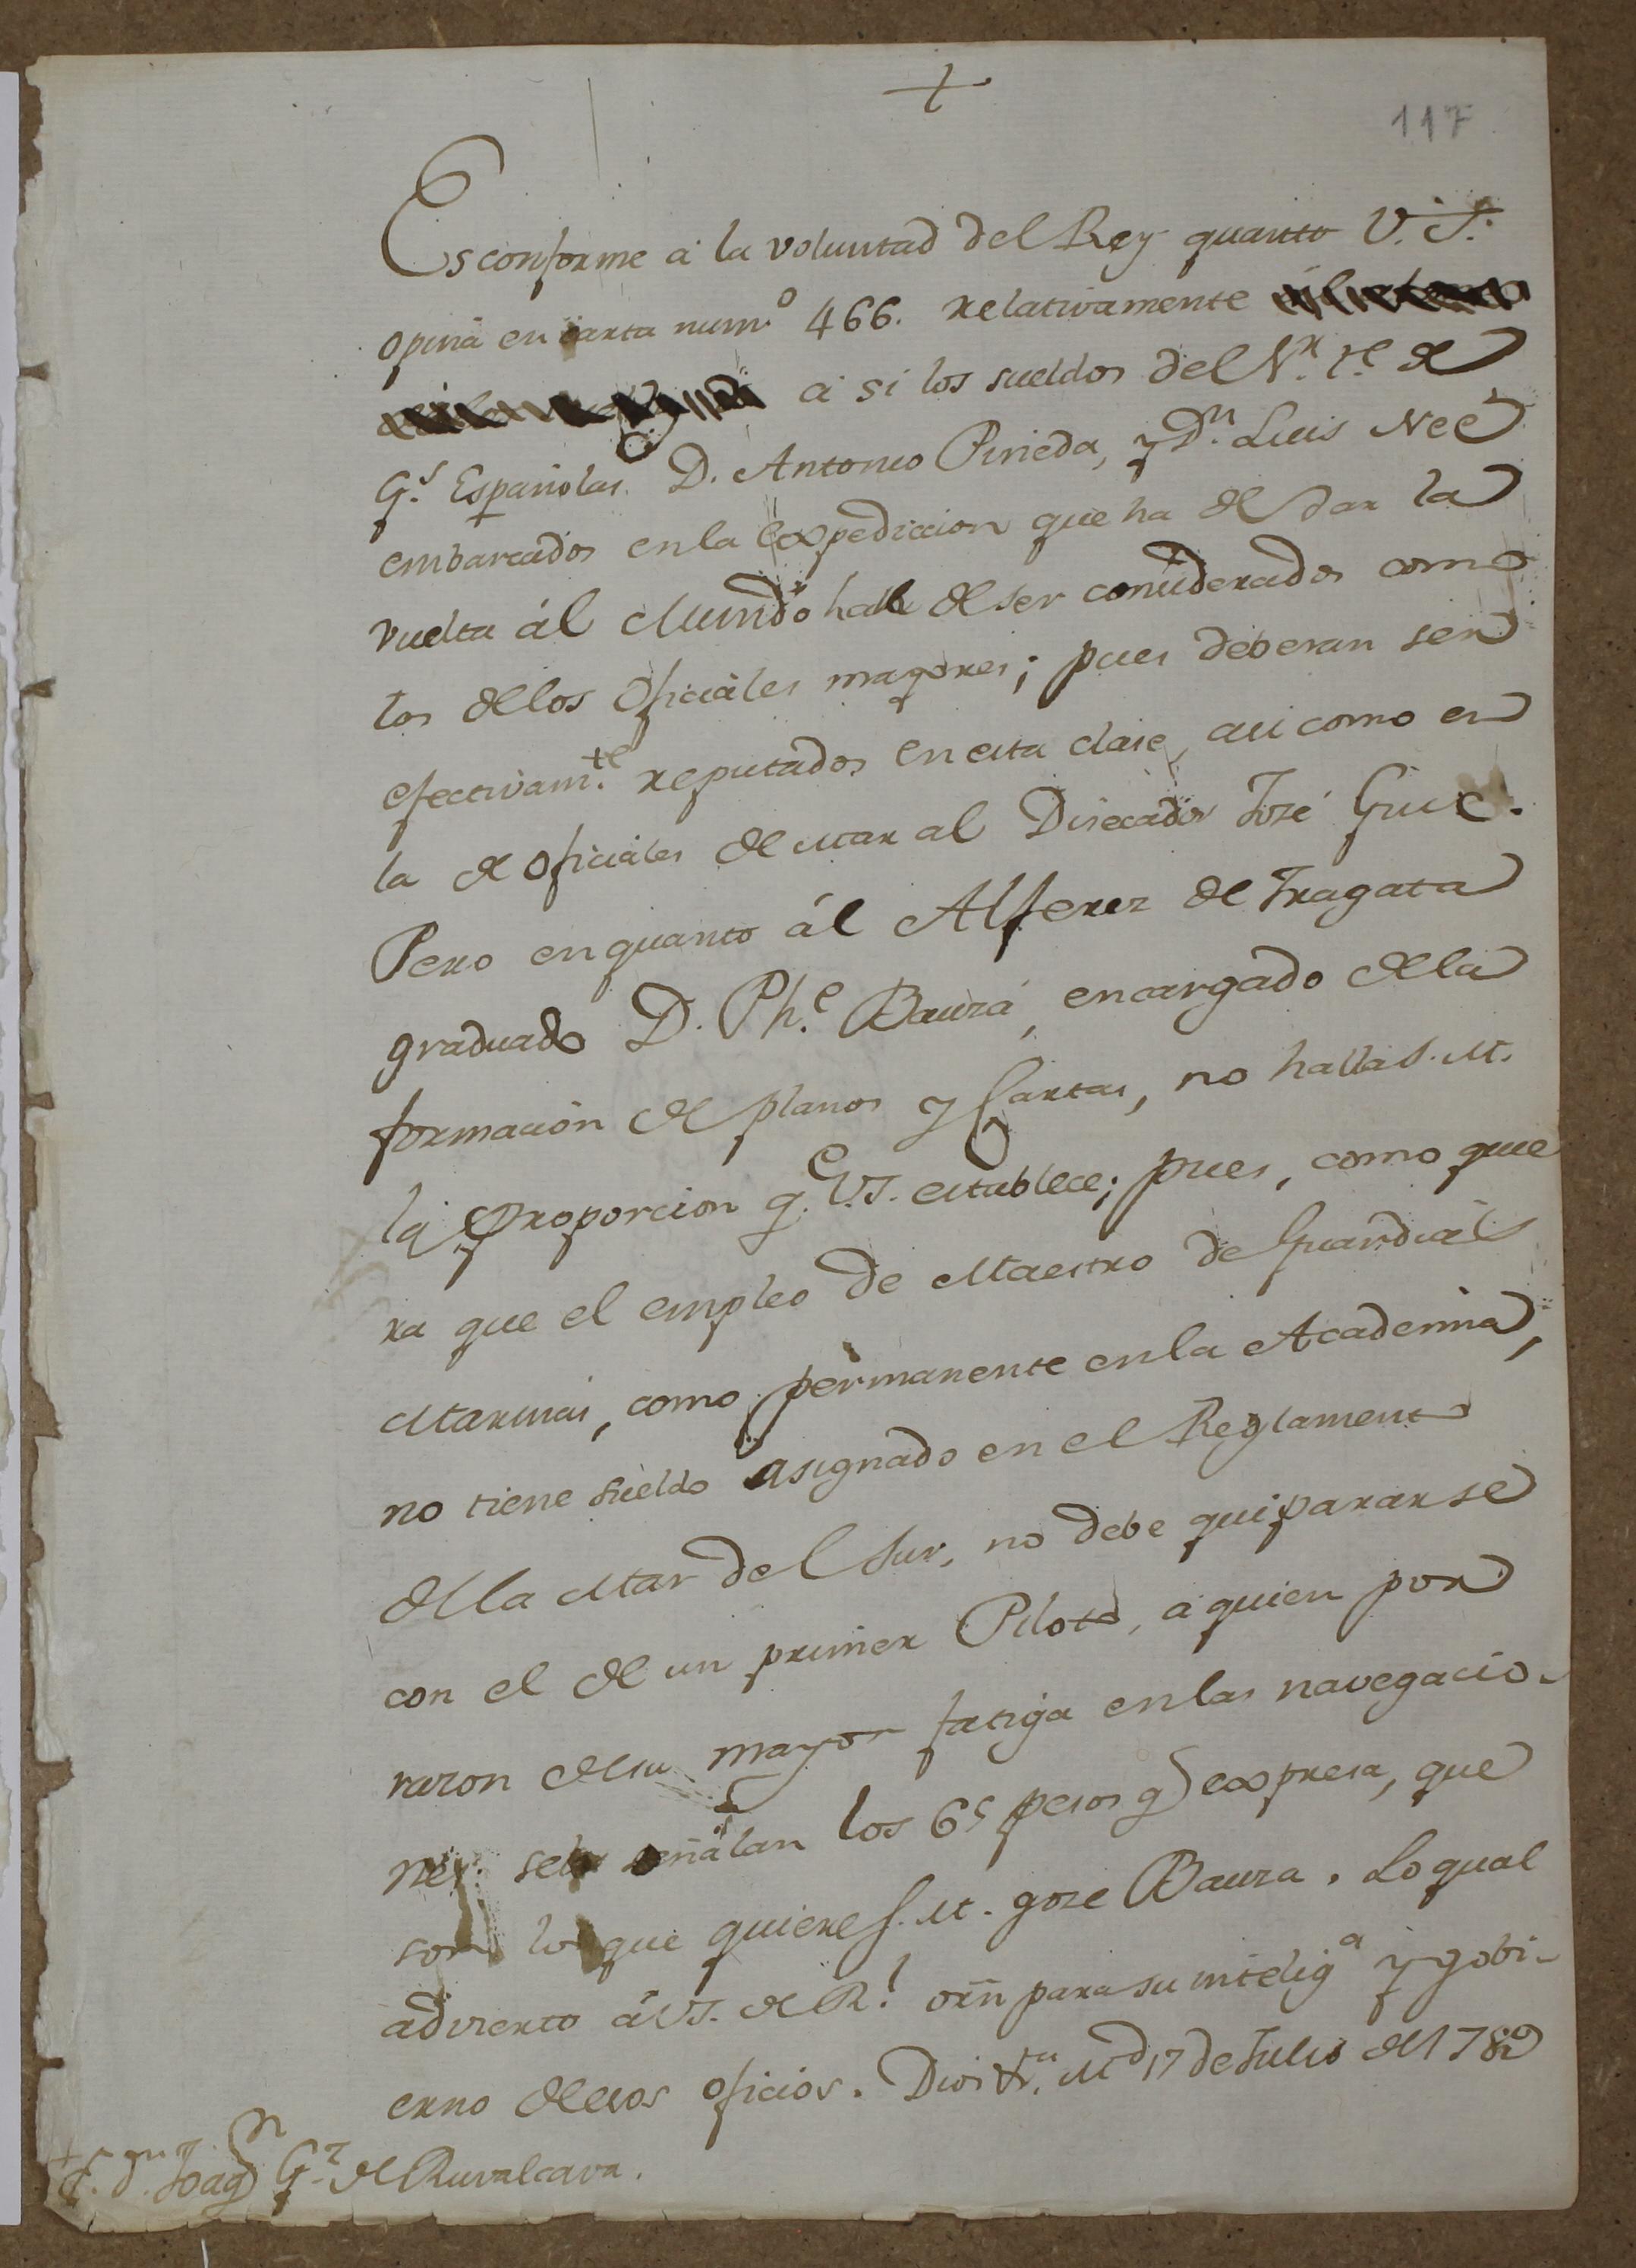 +
117
Es conforme à la voluntad del Rey quanto V.S.
opina en carta num.º 466. relativamente
a si los sueldos del de
G.s Españolas D. Antonio Pineda, y D.n Luis Neé
embarcados en la Expediccion que ha de dar la
vuelta ál Mundo han de ser considerados como
los de los Oficiàles mayores; pues deberan ser
efectivam.te reputados en esta clase, asi como en
la de oficiales de mar al Disecador José Guic.
Pero en quanto ál Alferez de Fragata
graduado D. Ph.e Bauzá, encargado de la
formación de planos y Cartas, no halla S.M.
la proporcion q.e V.S. establece; pues, como quie
ra que el empleo de Maestro de Guardiàs
Marinas, como permanente en la Academia,
no tiene sueldo asignado en el Reglamento
de la Mar del Sur, no debe quipararse
con el de un primer Piloto, a quien por
razon de su mayor fatiga en las navegacio-
nes se le señalan los 65 pesos q.e expresa, que
son los que quiere S.M. goze Bauza. Lo qual
advierto á V.S. de R.l orñ para su intelig.a y gobi-
erno de esos oficios. Dios &.a M.d 17 de Julio de 1789
S.r D.n Joaq.n G.z de Ruvalcava.